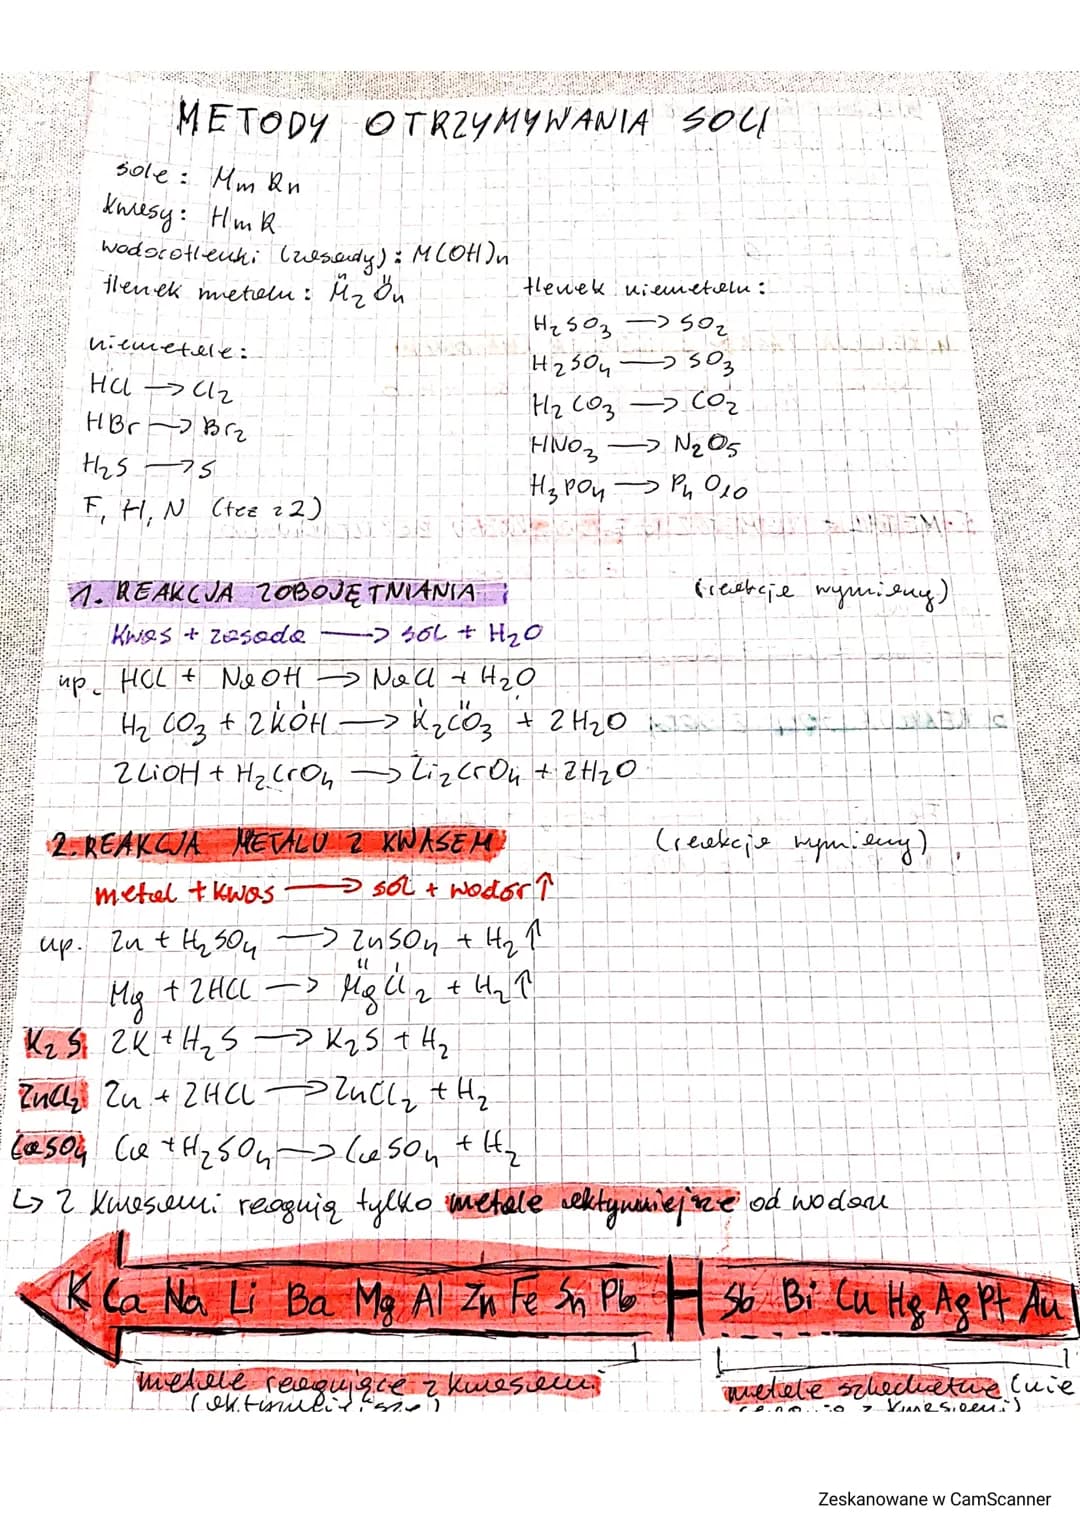 METODY OTRZYMYWANIA SOLI
sole: MmRn
kwasy: HmR
wodorotlenki (zasady): M(OH)n
tlenek metalu: M₂On
niemetale:
HCl → Cl₂
HBr → Br₂
H₂S → S
F, H, N (też z 2)
tlenek niemetalu:
H₂SO₃ → SO₂
H₂SO₄ → SO₃
H₂CO₃ → CO₂
HNO₃ → N₂O₅
H₃PO₄ → P₄O₁₀
1. REAKCJA ZOBOJĘTNIANIA (reakcje wymiany)
kwas + zasada → sól + H₂O
np. HCl + NaOH → NaCl + H₂O
H₂CO₃ + 2KOH → K₂CO₃ + 2H₂O
2LiOH + H₂CrO₄ → Li₂CrO₄ + 2H₂O
2. REAKCJA METALU Z KWASEM (reakcje wymiany)
metal + kwas → sól + wodór ↑
np. Zn + H₂SO₄ → ZnSO₄ + H₂ ↑
Mg + 2HCl → MgCl₂ + H₂ ↑
K₂S 2K + H₂S → K₂S + H₂
ZnCl₂ Zn + 2HCl → ZnCl₂ + H₂
CaSO₄ Ca + H₂SO₄ → CaSO₄ + H₂
↳ z kwasami reagują tylko metale aktywniejsze od wodoru
K Ca Na Li Ba Mg Al Zn Fe Sn Pb H Sb Bi Cu Hg Ag Pt Au
metale reagujące z kwasami
metale szlachetne (nie
z kwasami)
Zeskanowane w CamScanner